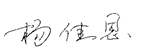 杨佳恩